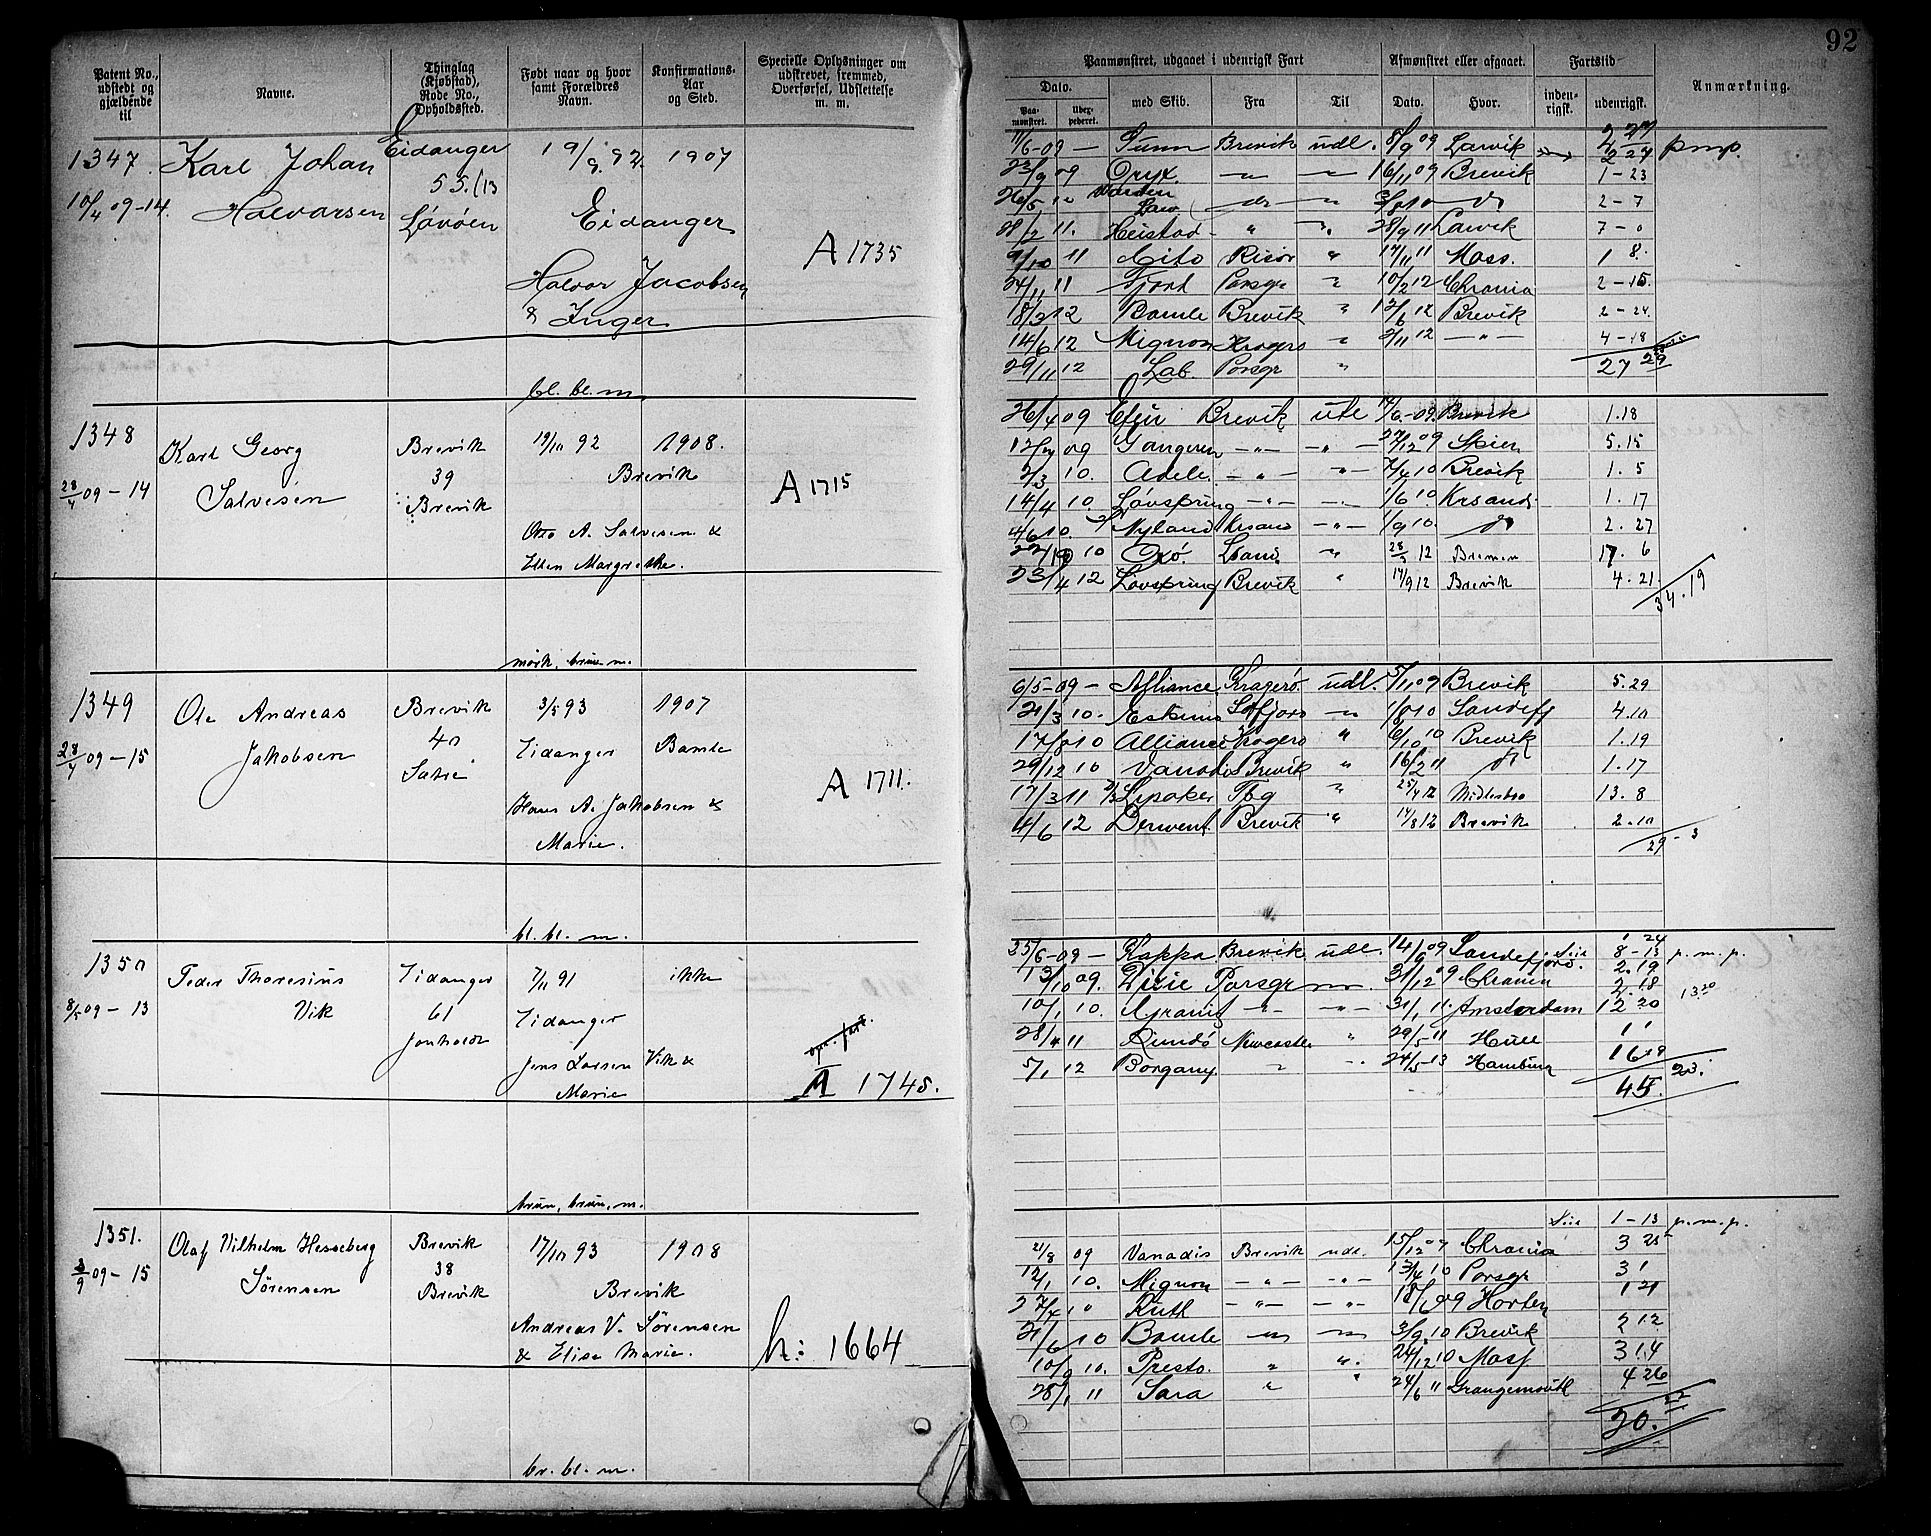 92
Patent No., udstedt og gjældende til
Navne.
Thinglag (Kjøbstad), Rode No., Opholdssted.
Født naar og hvor samt Forældres Navn.
Konfirmations-Aar og Sted.
Specielle Oplysninger om udskrevet, fremmed, Overførsel, Udslettelse m. m.
Paamønstret, udgaaet i udenrigsk Fart
Afmønstret eller afgaaet.
Fartstid
Anmærkning.
Dato.
med Skib.
Fra
Til
Dato.
Hvor.
inden-rigsk.
udenrigsk.
Paa-mønstret.
1347 Karl Johan Eidanger 19/9 92 1907
55./13
10/4 09-14. Halvorsen Løvøen Eidanger
A 1735
Halvor Jacobsen
& Inger
bl. bl. m.
11/6-09 — Gunn Brevik udl. 8/9 09 Larvik 2 27 pmp.
23/9 09 Oryx — „ — „ 16/11 09 Brevik 1-23
2-7
28/2 11. Heistad „ „ 28/9 11 Larvik 7-0
9/10 11 Cito Risør „ 17/11 11 Moss. 1 8.
24/11 11 Fjord Porsgr „ 10/2 12 Chrania 2-15
18/3 12 Bamle Brevik „ 12/6 12 Brevik 2-24
14/6 12 Mignon Kragerø „ 2/11 12 — „ — 4-18
29/11 12 Lab. Porsgr „ 27 29
1348 Karl Georg Brevik 19/10 92 1908.
39 Brevik
28/4 09-14 Salvesen Brevik
A 1715
Otto A. Salvesen &
Ellen Margrethe.
mørk, brun m.
26/4 09 Brevik ute 14/6-09 Brevik 1.18
12/7 09 Gangeren — „ — — „ — 27/12 09 Skien 5.15
2/3 10. Adele — „ — — „ — 7/4 10 Brevik 1.5
14/4 10. Løvspring — „ — — „ — 1/6 10 Krsand 1.17
4/6 10 Nyland Krsand — „ — 1/9 10. do 2.27
10 Oxø. „ 28/3 12 Bremen 17. 6
23/4 12 Løvspring Brevik „ 14/9 12 Brevik 4.21
34.19
1349 Ole Andreas Brevik 3/5 93 1907
40 Eidanger Bamle
28/4 09-15 Jakobsen
A 1711.
Hans A. Jakobsen &
Marie.
bl. bl. m.
6/5-09 — Alliance Kragerø udl. 5/11 09 Brevik 5.29
21/3 10. 1/8 10 Sandefj 4.10
17/8 10 Alliance Kragerø „ 6/10 10 Brevik 1.19
29/12 10 Vanadis Brevik „ 16/2 11 do 1.17
17/3 11 Tbg „ 25/4 12 13.8
4/6 12 Derwent Brevik „ 14/8 12 Brevik 2.10
29-3
1350 Peder Thoresius Eidanger 7/11 91 ikke
Vik 61 Eidanger
8/5 09-13
Jens Larsen Vik &
Marie
A 1745.
brun, brun, m.
25/6-09 — Kappa Brevik udl. 14/9 09 Sandefjord. 8-13 p. m. p.
13/10 09. Porsgr 31/12 09 Chrania 2.18
10/1 10. Granit — „ — — „ — 31/1 11 Amsterdam 12 20 13 20
28/4 11 Rundø Newcastle „ 29/5 11 Hull 1 1
5/1 12 Borgany „ „ 24/5-13 Hamburg 16 19
45. 23.
1351. Olaf Vilhelm Hesseberg Brevik 17/10 93 1908
38
3/9 09-15 Sørensen Brevik Brevik
Andreas V. Sørensen
& Elise Marie.
h: 1664
br. bl. m.
1-13 p. m. p.
21/8 09 Vanadis Brevik udl. 15/12 09 Chrania 3 25
12/1 10. Mignon — „ — — „ — 13/4 10 Porsgr 3 1
27/4 10 Ruth — „ — — „ — Horten 1 21
21/6 10 Bamle „ „ 3/9 10 Brevik 2 12
10/9 10. Presto. „ „ 24/12 10 Moss 3 14
28/1 11 Sara „ „ 24/6 11 Grangemouth 4 26
20. 22